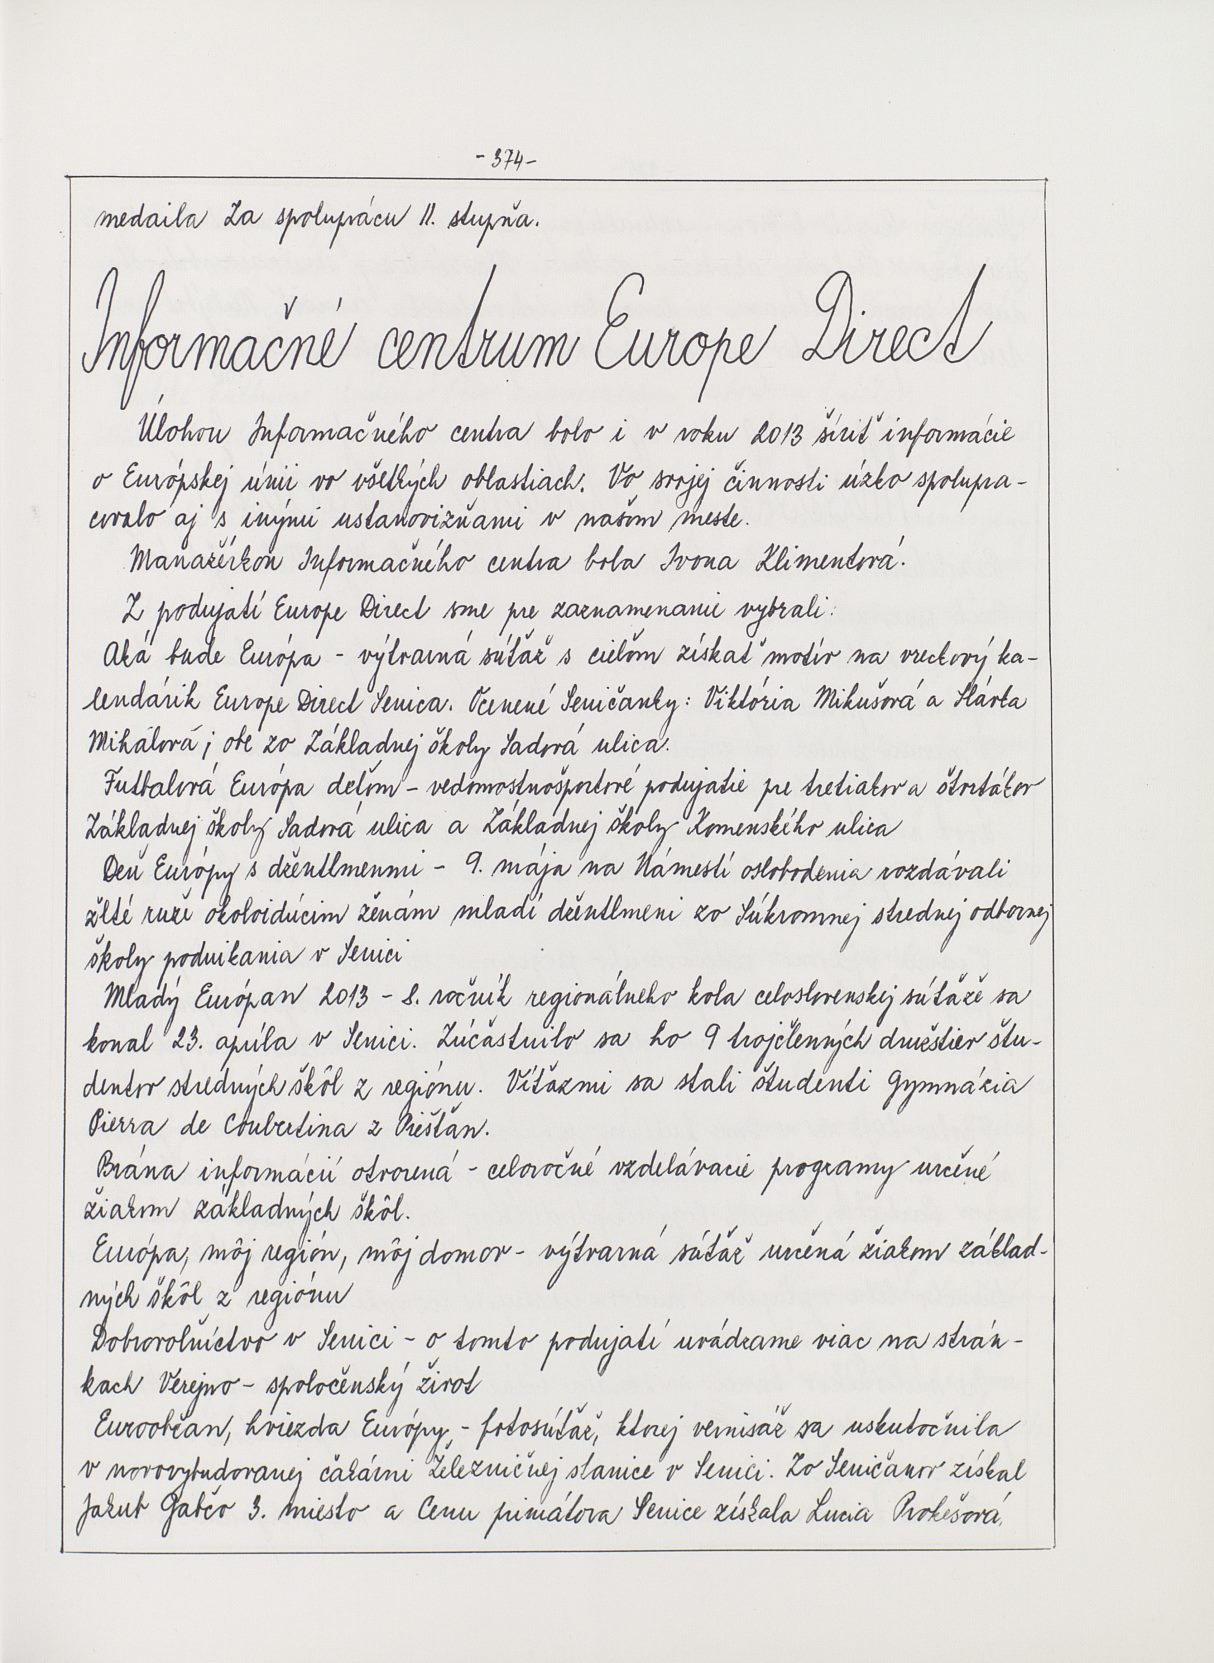 -374-
medaila Za spoluprácu II. stupňa.
Informačné centrum Europe Direct
Úlohou Informačného centra bolo i v roku 2013 šíriť informácie
o Európskej únii vo všetkých oblastiach. Vo svojej činnosti úzko spolupra-
covalo aj s inými ustanovizňami v našom meste.
Manažérkou Informačného centra bola Ivona Klimentová.
Z podujatí Európe Direct sme pre zaznamenanie vybrali:
Aká bude Európa - výtvarná súťaž s cieľom získať motív na vreckový ka-
lendárik Europe Direct Senica. Ocenené Seničanky: Viktória Mikušová a Slávka
Mihálová; obe zo Základnej školy Sadová ulica.
Futbalová Európa deťom - vedomostnošportové podujatie pre tretiakov a štvrtákov
Základnej školy Sadová ulica a Základnej školy Komenského ulica
Deň Európy s džentlmenmi - 9. mája na Námestí oslobodenia rozdávali
žlté ruže okoloidúcim ženám mladí džentlmeni zo Súkromnej strednej odbornej
školy podnikania v Senici
Mladý Európan 2013 - 8. ročník regionálneho kola celoslovenskej súťaže sa
konal 23. apríla v Senici. Zúčastnilo sa ho 9 trojčlenných družstiev štu-
dentov stredných škôl z regiónu. Víťazmi sa stali študenti Gymnázia
Pierra de Coubertina z Piešťan.
Brána informácií otvorená - celoročné vzdelávacie programy určené
žiakom základných škôl.
Európa, môj región, môj domov - výtvarná súťaž určená žiakom základ-
ných škôl z regiónu
Dobrovoľníctvo v Senici - o tomto podujatí uvádzame viac na strán-
kach Verejno - spoločenský život
Euroobčan, hviezda Európy - fotosúťaž, ktorej vernisáž sa uskutočnila
v novovybudovanej čakárni Železničnej stanice v Senici. Zo Seničanov získal
Jakub Gabčo 3. miesto a Cenu primátora Senice získala Lucia Prokešová.